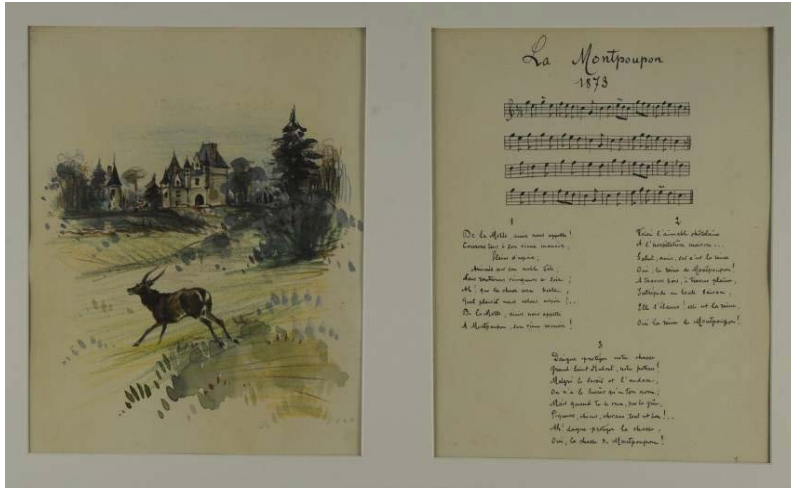 La Montpoupon
1873
1
De la Motte, amis nous appelle !
Courons tous à son vieux manoir,
Pleins d'espoir,
Ah ! que la chasse sera belle,
Quel plaisir nous allons avoir !...
De la Motte, amis nous appelle
A Montpoupon, son vieux manoir !
2
Voici l'aimable châtelaine
A l'hospitalière maison...
Salut, amis, car c'est la reine
Oui, la reine de Montpoupon !
A travers bois, à travers plaine,
Intrépide en toute saison,
Elle s'élance ! elle est la reine,
Oui la reine de Montpoupon !
3
Daigne protéger notre chasse
Grand Saint Hubert, notre patron !
Malgré la et l'audace,
On n'a le qu'en ton nom,
Mais quand tu le veux, par ta grâce,
Piqueurs, chiens, chevaux tout est bon !..
Ah ! daigne protéger la chasse,
Oui, la chasse de Montpoupon !